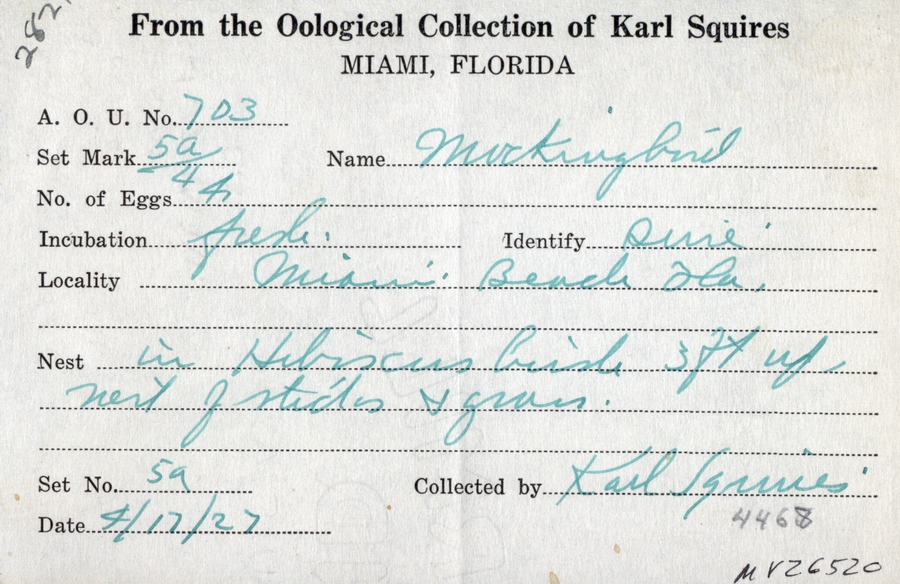 282
From the Oological Collection of Karl Squires
MIAMI, FLORIDA
A. O. U. No. 703
Set Mark 5a/4 Name Mockingbird
No. of Eggs 4
Incubation fresh. Identify Sure
Locality Miami Beach Fla.
Nest in Hibiscus bush 3 ft up,
nest of sticks & grass.
Set No. 5a Collected by Karl Squires
Date 4/17/27
4468
MV26520